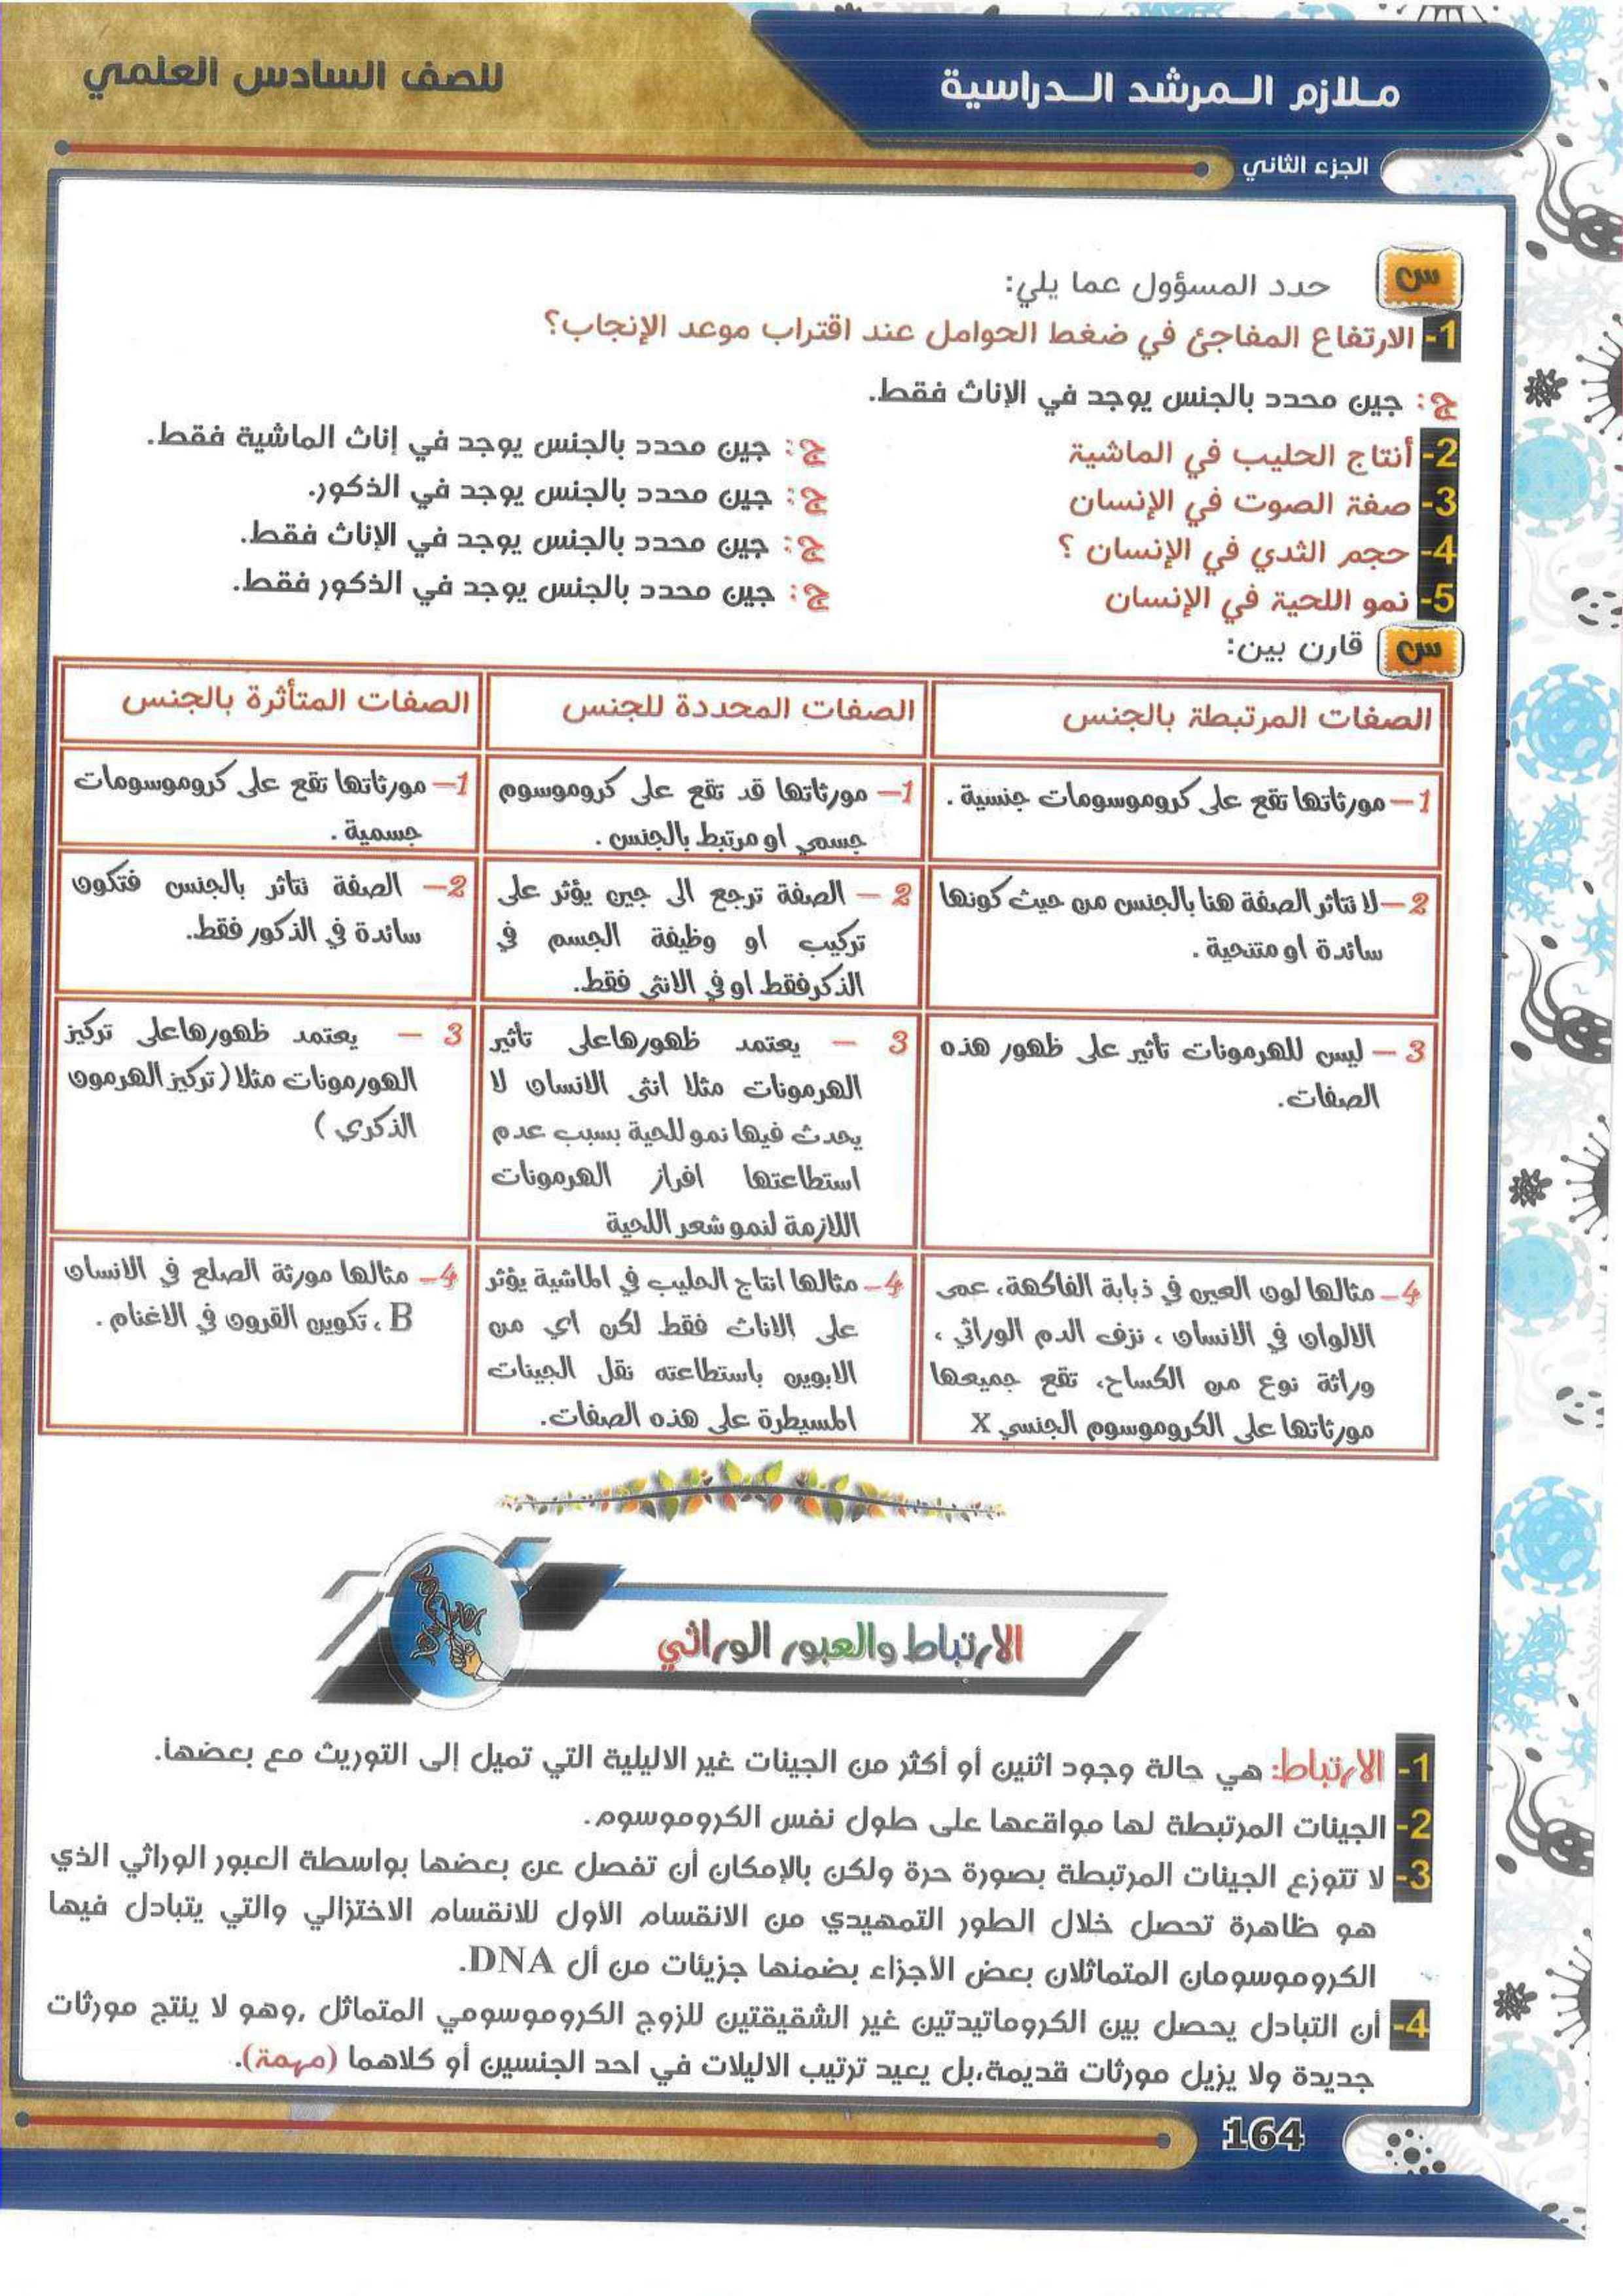 ملازم المرشد الدراسية
للصف السادس العلمي
الجزء الثاني
س حدد المسؤول عما يلي:
1- الارتفاع المفاجئ في ضغط الحوامل عند اقتراب موعد الإنجاب؟
ج: جين محدد بالجنس يوجد في الإناث فقط.
2- أنتاج الحليب في الماشية ج: جين محدد بالجنس يوجد في إناث الماشية فقط.
3- صفة الصوت في الإنسان ج: جين محدد بالجنس يوجد في الذكور.
4- حجم الثدي في الإنسان ؟ ج: جين محدد بالجنس يوجد في الإناث فقط.
5- نمو اللحية في الإنسان ج: جين محدد بالجنس يوجد في الذكور فقط.
س قارن بين:
الصفات المرتبطة بالجنس
الصفات المحددة للجنس
الصفات المتأثرة بالجنس
1– مورثاتها تقع على كروموسومات جنسية .
1– مورثاتها قد تقع على كروموسوم
جسمي او مرتبط بالجنس .
1– مورثاتها تقع على كروموسومات
جسمية .
2– لا تتاثر الصفة هنا بالجنس من حيث كونها
سائدة او متنحية .
2 – الصفة ترجع الى جين يؤثر على
تركيب او وظيفة الجسم في
الذكر فقط او في الانثى فقط.
2– الصفة تتاثر بالجنس فتكون
سائدة في الذكور فقط.
3 – ليس للهرمونات تأثير على ظهور هذه
الصفات.
3 – يعتمد ظهورها على تأثير
الهرمونات مثلا انثى الانسان لا
يحدث فيها نمو للحية بسبب عدم
استطاعتها افراز الهرمونات
اللازمة لنمو شعر اللحية
3 – يعتمد ظهورها على تركيز
الهورمونات مثلا (تركيز الهرمون
الذكري )
4– مثالها لون العين في ذبابة الفاكهة، عمى
الالوان في الانسان ، نزف الدم الوراثي ،
وراثة نوع من الكساح، تقع جميعها
مورثاتها على الكروموسوم الجنسي X
4– مثالها انتاج الحليب في الماشية يؤثر
على الاناث فقط لكن اي من
الابوين باستطاعته نقل الجينات
المسيطرة على هذه الصفات.
4– مثالها مورثة الصلع في الانسان
B ، تكوين القرون في الاغنام .
الارتباط والعبور الوراثي
1- الارتباط: هي حالة وجود اثنين أو أكثر من الجينات غير الاليلية التي تميل إلى التوريث مع بعضها.
2- الجينات المرتبطة لها مواقعها على طول نفس الكروموسوم.
3- لا تتوزع الجينات المرتبطة بصورة حرة ولكن بالإمكان أن تفصل عن بعضها بواسطة العبور الوراثي الذي
هو ظاهرة تحصل خلال الطور التمهيدي من الانقسام الأول للانقسام الاختزالي والتي يتبادل فيها
الكروموسومان المتماثلان بعض الأجزاء بضمنها جزيئات من أل DNA.
4- أن التبادل يحصل بين الكروماتيدتين غير الشقيقتين للزوج الكروموسومي المتماثل ,وهو لا ينتج مورثات
جديدة ولا يزيل مورثات قديمة،بل يعيد ترتيب الاليلات في احد الجنسين أو كلاهما (مهمة).
164